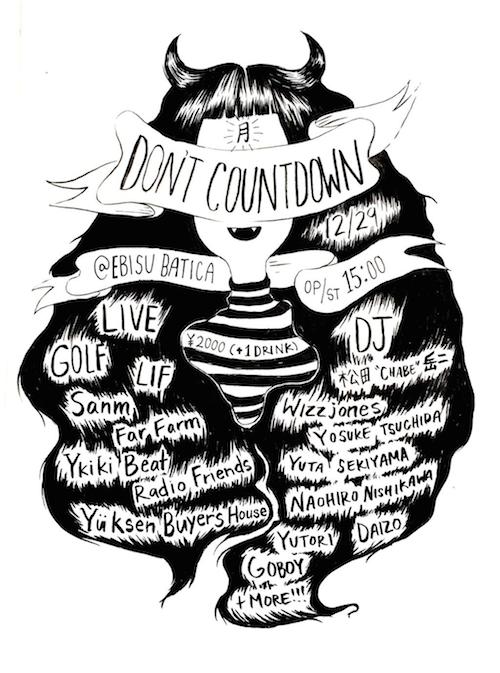 月
DON'T COUNTDOWN
12/29
@EBISU BATICA
OP/ST 15:00
¥2000 (+1DRINK)
LIVE
GOLF
LIF
Sanm
Far Farm
Ykiki Beat
Radio Friends
Yüksen Buyers House
DJ
松田 "CHABE" 岳二
Wizzjones
YOSUKE TSUCHIDA
YUTA SEKIYAMA
NAOHIRO NISHIKAWA
YUTORI DAIZO
GOBOY
+MORE!!!